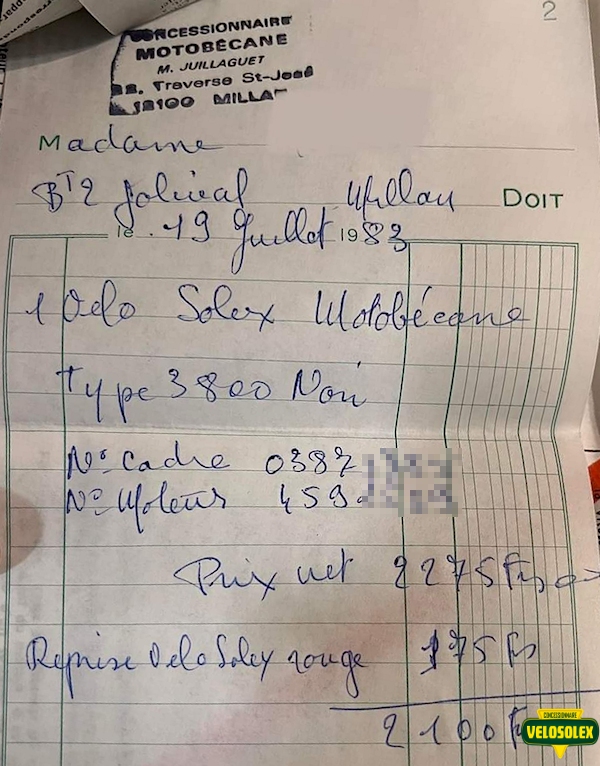 2
CONCESSIONNAIRE
MOTOBÉCANE
M. JUILLAGUET
Traverse St-José
12100 MILLAU
Madame
BT2 Millau DOIT
le 19 Juillet 1983
1 Velo Solex Motobécane
Type 3800 Noir
N° Cadre 0387
N° Moteur 459
Prix net 2275 Frs
Reprise Velo Solex rouge 175 Frs
2100 F
CONCESSIONNAIRE
VELOSOLEX